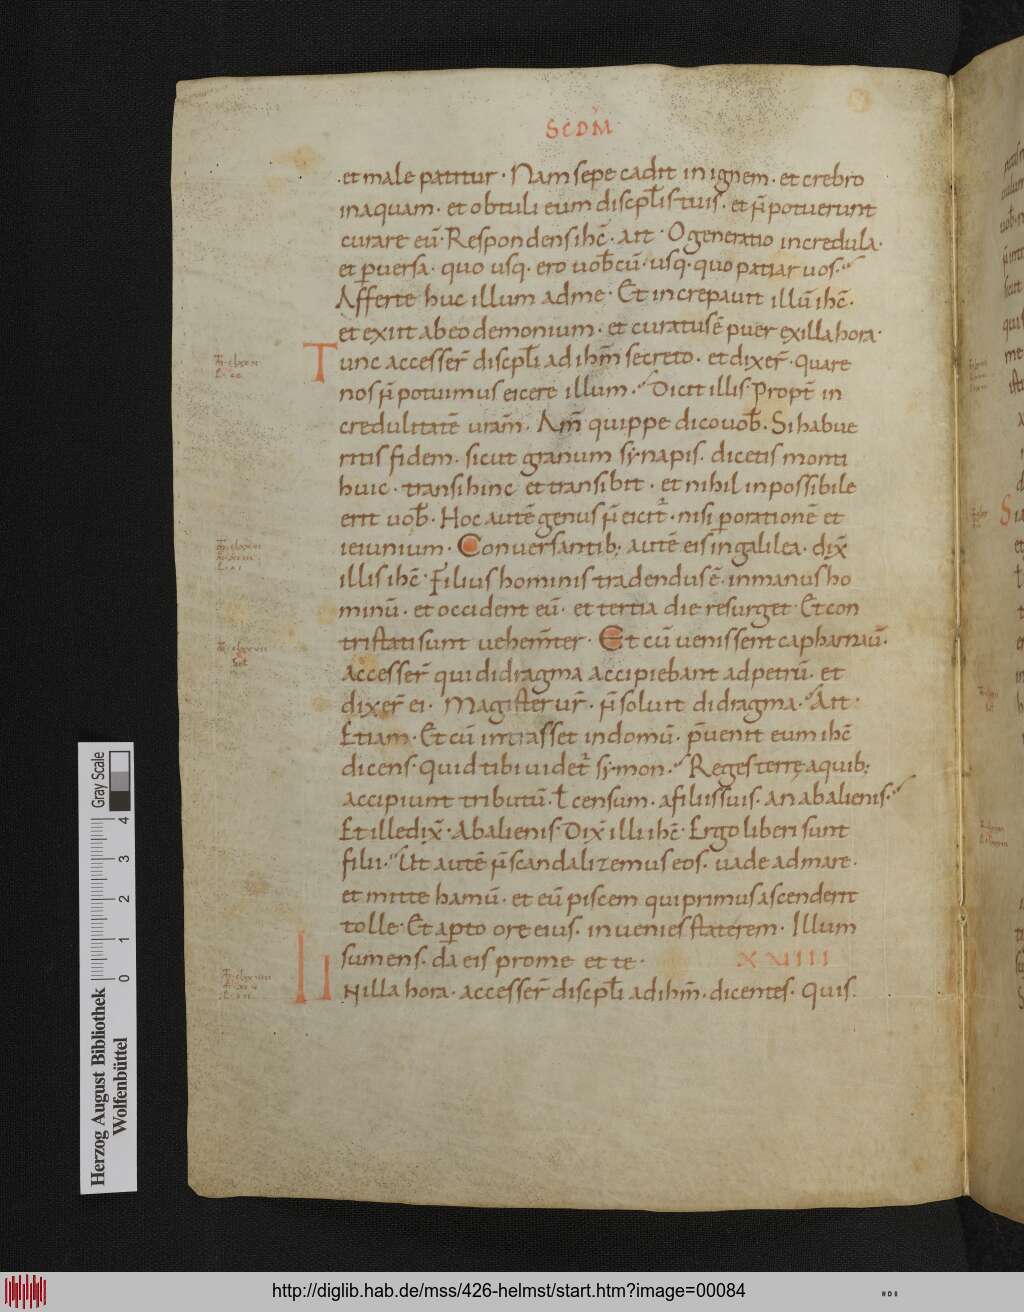 SCDM
et male patitur · Nam sepe cadit in ignem · et crebro
in aquam · et obtuli eum discpłis tuis · et n̄ potuerunt
curare eū · Respondens ihc̄ · ait · O generatio incredula ·
et ꝑuersa · quo usq · ero uob̄cū · usq · quo patiar uos ·
Afferte huc illum ad me · Et increpauit illū ihc̄ ·
et exiit ab eo demonium · et curatus ē puer ex illa hora ·
Tunc accesser̄ discpłi ad ihm̄ secreto · et dixer̄ · quare
nos n̄ potuimus eicere illum · Dicit illis · Propt̄ in
credulitatē uram̄ · Am̄ quippe dico uob̄ · Si habue
ritis fidem · sicut granum synapis · dicetis monti
huic · transi hinc et transibit · et nihil inpossibile
erit uob̄ · Hoc autē genus n̄ eicit̄ · nisi ꝑ orationē et
ieiunium · Conuersantib; autē eis in galilea · dix̄
illis ihc̄ · Filius hominis tradendus ē · in manus ho
minū · et occident eū · et tertia die resurget · Et con
tristati sunt uehem̄ter · Et cū uenissent capharnaū ·
Accesser̄ qui didragma accipiebant ad petrū · et
dixer̄ ei · Magister ur̄ · n̄ soluit didragma · Ait ·
Etiam · Et cū intrasset in domū · p̄uenit eum ihc̄
dicens · Quid tibi uidet̄ symon · Reges terrę a quib;
accipiunt tributū · ł censum · a filiis suis · an ab alienis ·
Et ille dix̄ · Ab alienis · Dix̄ illi ihc̄ · Ergo liberi sunt
filii · Ut autē n̄ scandalizemus eos · uade ad mare ·
et mitte hamū · et eū piscem qui primus ascenderit
tolle · Et aꝑto ore eius · inuenies staterem · Illum
sumens · da eis pro me et te · XVIIII
IN illa hora · accesser̄ discpłi ad ihm̄ · dicentes · Quis
Gray Scale
0 1 2 3 4
Herzog August Bibliothek
Wolfenbüttel
http://diglib.hab.de/mss/426-helmst/start.htm?image=00084